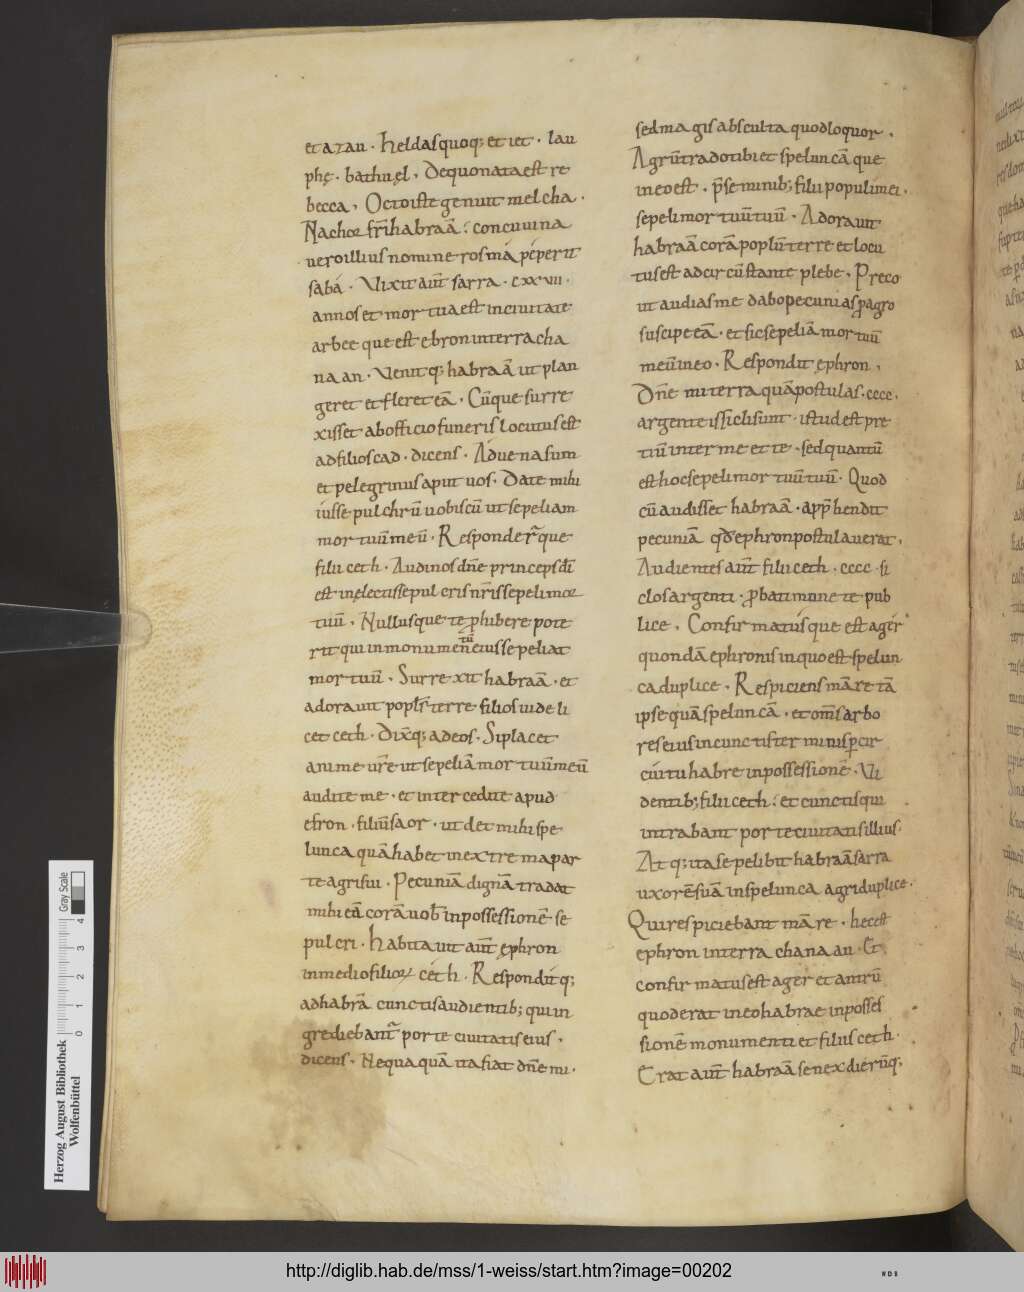 et azau · heldas quoq; et iet · lau
phę · bathuęl , Dequo nata est re
becca , Octo iste genuit melcha .
Nachor fr̄i habraā : concuuina
uero illius nomine rosmá péperit
sabá · Vixit aut̄ sarra · cxxvii ·
annos et mortua est in ciuitate
arbee que est ebron in terra cha
na an · Venitq; habraā ut plan
geret et fleret eā · Cūque surre
xisset ab officio funeris locutus est
ad filios cad · dicens · Aduena sum
et pelegrinus aput uos · Date mihi
iusse pulchrū uobiscū ut sepeliam
mortuū meū · Responder̄ que
filii ceth · Audi nos dn̄e princeps dī
est in electis sepulcris nr̄is sepeli mor
tuū · Nullusque te ꝓhibere pote
rit qui in monumen̄ eius sepeliat
tū
mortuū , Surrexit habraā · et
adorauit popl̄s terre filios uide li
cet ceth · Dix̄q; ad eos · Si placet
anime ur̄e ut sepeliā mortuū meū
audite me · et intercedite apud
efron · filiū saor · ut det mihi spe
lunca quā habet in extrema par
te agri sui · Pecuniā dignā tradat
mihi eā corā uob̄ in possessionē se
pulcri · habitauit aut̄ ęphron
in medio filiorꝝ céth · Respondit q;
ad habrā cunctis audientib; qui in
grediebant̄ porte ciuitatis eius .
dicens · Nequaquā ita fiat dn̄e mi ·
sed magis absculta quod loquor ,
Agrū trado tibi et speluncā que
in eo est · p̄senti b; filii populi mei .
sepeli mortuū tuū · Adorauit
habraā corā poplū terre et locu
tus est ad circūstante plebe , Preco
ut audias me dabo pecunias ꝓ agro
suscipe eā · et sic sepeliā mortuū
meū in eo · Respondit ęphron ,
Dn̄e mi terra quā postulas · cccc .
argenteis siclis sunt · istud est pre
tiū inter me et te · sed quantū
est hoc sepeli mortuū tuū · Quod
cū audisset habraā · app̄hendit
pecuniā qđ ephron postulauerat ,
Audientes aut̄ filii ceth · cccc · si
clos argenti · ꝓbati munete pub
lice , Confirmatús que est agér
quondā ephronis in quo est spelun
ca duplice · Respiciens māre tā
ipse quā speluncā · et om̄s arbo
res eius in cunctis terminis ꝑ cir
cúitu habre in possessionē · Vi
dentib; filii ceth : et cunctis qui
intrabant porte ciuitatis illius·
At q; ita sepelibit habraā sarra
uxorē suā in spelunca agri duplice ·
Qui respiciebant māre · hec est
ephron in terra chana an · Et
confirmatus est agér et antrū
quod erat in eo habrae in posses
sionē monumenti et filiis ceth ·
Erat aut̄ habraā senex dierūq;
Herzog August Bibliothek
Wolfenbüttel
0 1 2 3 4
Gray Scale
http://diglib.hab.de/mss/1-weiss/start.htm?image=00202